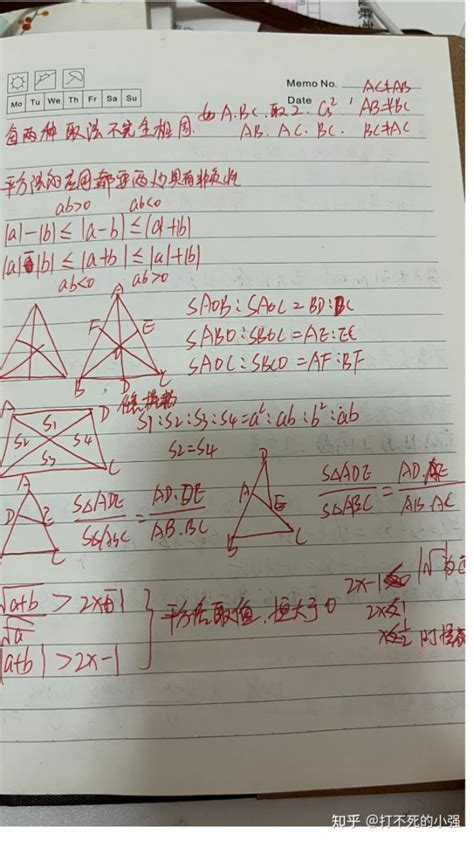 Memo No.
Mo Tu We Th Fr Sa Su
Date /
AC≠AB
每两种取法不完全相同. 如 A.BC.取2. C₃² AB≠BC
AB. AC. BC. BC≠AC
平方法的应用都要两边具有非负性
ab>0 ab<0
|a|-|b|≤|a-b|≤|a|+|b|
|a|-|b|≤|a+b|≤|a|+|b|
ab<0 ab>0
A
F E
O
B D C
SAOB:SAOC=BD:DC
SABO:SBOC=AE:EC
SAOC:SBCO=AF:BF
A D
S1
S2 S4
S3
C
S1:S2:S3:S4=a²:ab:b²:ab
S2=S4
A
D E
B C
S△ADE/S△ABC=AD.DE/AB.BC
D
A E
B C
S△ADE/S△ABC=AD.AE/AB.AC
√a+b > 2x-1
√a
|a+b|>2x-1
恒大于0
2x-1<0
2x<1
x<1/2 时
知乎 @打不死的小强